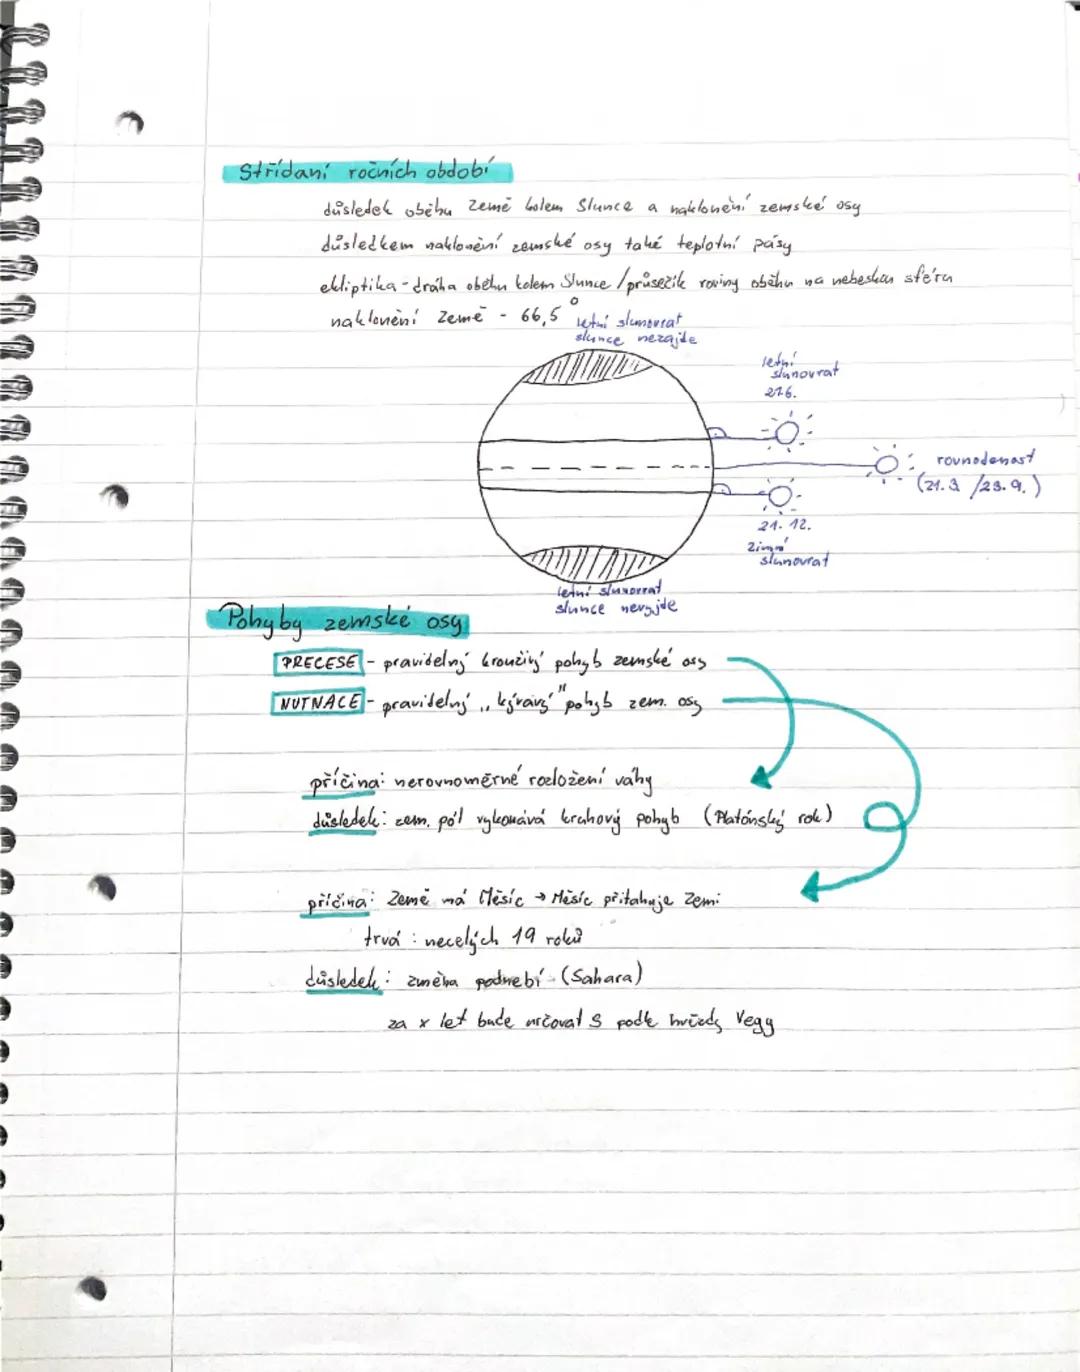 Střídaní ročních období
důsledek oběhu Země kolem Slunce a naklonění zemské osy
důsledkem naklonění zemské osy také teplotní pásy
ekliptika - dráha oběhu kolem Slunce / průsečík roviny oběhu na nebeskou sféru
naklonění Země - 66,5°
letní slunovrat
slunce nezajde
letní
slunovrat
21.6.
rovnodenost
(21.3 /23.9.)
21.12.
zimní
slunovrat
letní slunovrat
slunce nevyjde
Pohyby zemské osy
PRECESE - pravidelný krouživý pohyb zemské osy
NUTNACE - pravidelný „kývavý" pohyb zem. osy
příčina: nerovnoměrné rozložení váhy
důsledek: zem. pól vykonává kruhový pohyb (Platónský rok)
příčina: Země má Měsíc → Měsíc přitahuje Zemi
trvá : necelých 19 roků
důsledek: změna podnebí - (Sahara)
za x let bude určovat S podle hvězdy Vegy